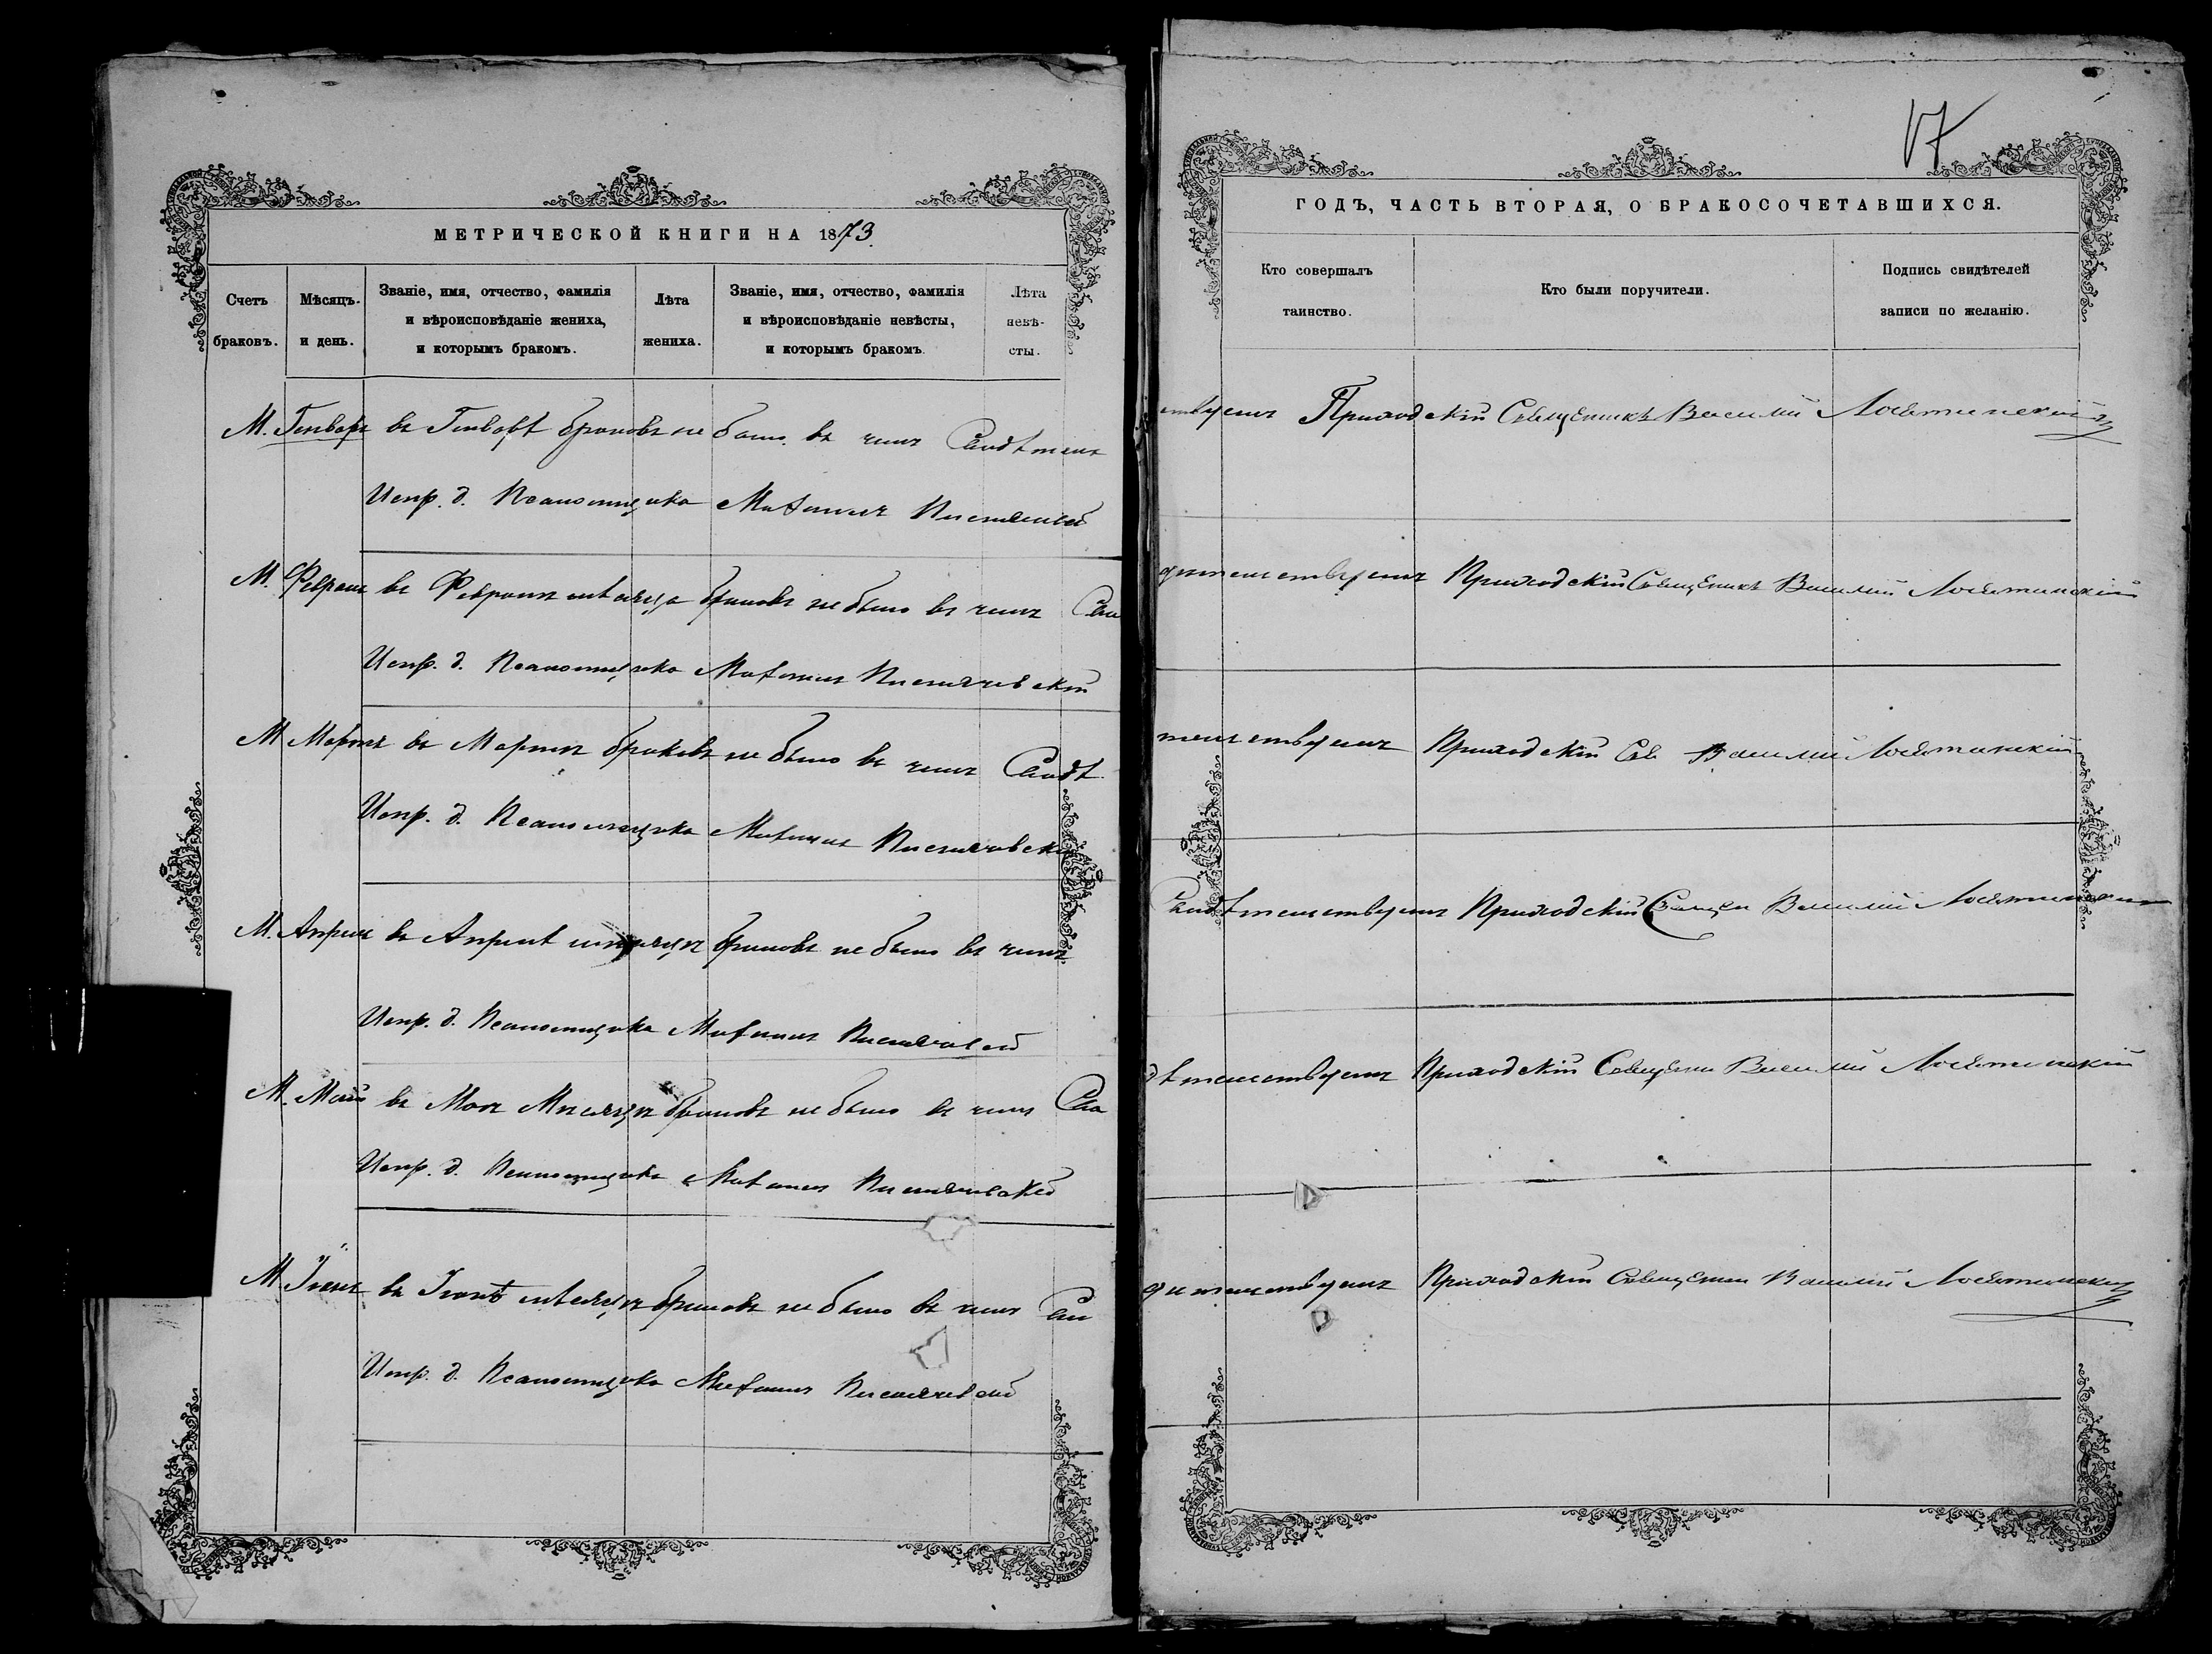 МЕТРИЧЕСКОЙ КНИГИ НА 1873
Счетъ браковъ.
Мѣсяцъ и день.
Званіе, имя, отчество, фамилія и вѣроисповѣданіе жениха, и которымъ бракомъ.
Лѣта жениха.
Званіе, имя, отчество, фамилія и вѣроисповѣданіе невѣсты, и которымъ бракомъ.
Лѣта невѣ-сты.
М. Генварь въ Генварѣ браковъ не было въ чемъ Свидѣтель
Испр. д. Псаломщика
М. Февраль въ Февралѣ мѣсяца браковъ не было въ чемъ Сви
Испр. д. Псаломщика
М Мартъ въ Мартѣ браковъ не было въ чемъ Свидѣ
Испр. д. Псаломщика
М. Апрель въ Апрелѣ мѣсяцѣ браковъ не было въ чемъ
Испр. д. Псаломщика
М. Май въ Маѣ Мѣсяцѣ браковъ не было въ чемъ Сви
Испр. д. Псаломщика
М. Іюнь въ Іюнѣ мѣсяцѣ браковъ не было въ чемъ Сви
Испр. д. Псаломщика
17
ГОДЪ, ЧАСТЬ ВТОРАЯ, О БРАКОСОЧЕТАВШИХСЯ.
Кто совершалъ таинство.
Кто были поручители.
Подпись свидѣтелей записи по желанію.
ствуемъ Приходскій Священикъ Василий
дителствуемъ Приходскій Священикъ Василий
телствуемъ Приходскій Св Василий
Свидѣтелствуемъ Приходскій Василий
дѣтелствуемъ Приходскій Священи Василий
дителствуемъ Приходскій Священи Василий